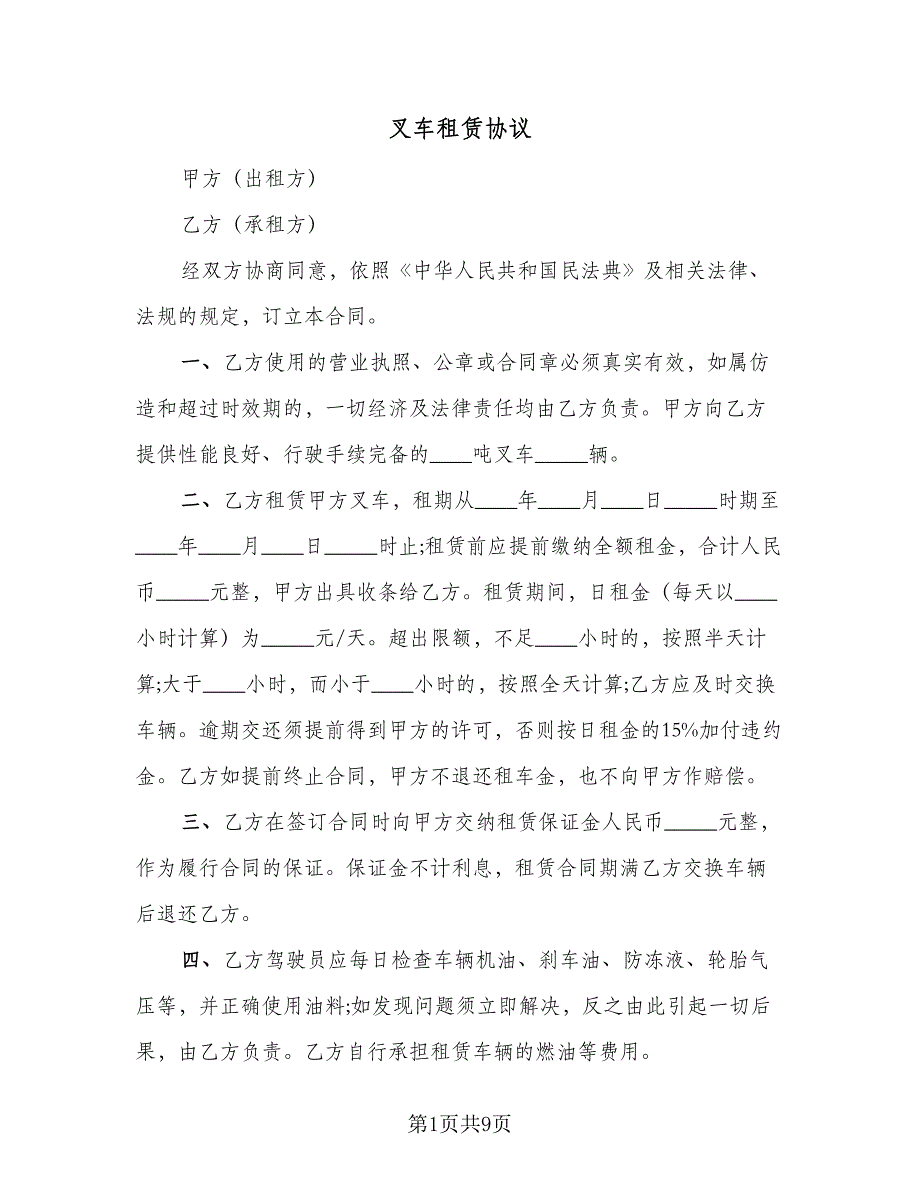 叉车租赁协议
甲方（出租方）
乙方（承租方）
经双方协商同意，依照《中华人民共和国民法典》及相关法律、
法规的规定，订立本合同。
一、乙方使用的营业执照、公章或合同章必须真实有效，如属仿
造和超过时效期的，一切经济及法律责任均由乙方负责。甲方向乙方
提供性能良好、行驶手续完备的____吨叉车_____辆。
二、乙方租赁甲方叉车，租期从____年____月____日_____时期至
____年____月____日_____时止;租赁前应提前缴纳全额租金，合计人民
币_____元整，甲方出具收条给乙方。租赁期间，日租金（每天以____
小时计算）为_____元/天。超出限额，不足____小时的，按照半天计
算;大于____小时，而小于____小时的，按照全天计算;乙方应及时交换
车辆。逾期交还须提前得到甲方的许可，否则按日租金的15%加付违约
金。乙方如提前终止合同，甲方不退还租车金，也不向甲方作赔偿。
三、乙方在签订合同时向甲方交纳租赁保证金人民币_____元整，
作为履行合同的保证。保证金不计利息，租赁合同期满乙方交换车辆
后退还乙方。
四、乙方驾驶员应每日检查车辆机油、刹车油、防冻液、轮胎气
压等，并正确使用油料;如发现问题须立即解决，反之由此引起一切后
果，由乙方负责。乙方自行承担租赁车辆的燃油等费用。
第1页共9页